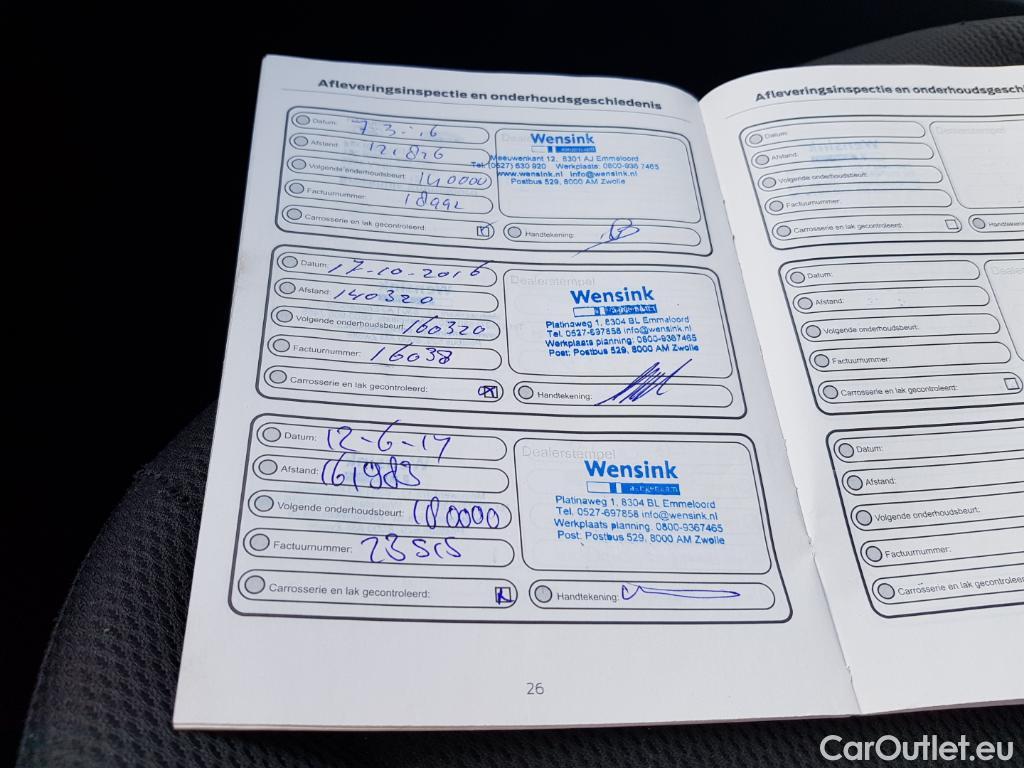 Afleveringsinspectie en onderhoudsgeschiedenis
Datum: 7-3-16
Afstand: 121826
Volgende onderhoudsbeurt: 140000
Factuurnummer: 18992
Carrosserie en lak gecontroleerd:
Wensink
Meeuwenkant 12, 8301 AJ Emmeloord
Tel. (0527) 630 920 Werkplaats: 0800-936 7465
www.wensink.nl info@wensink.nl
Postbus 529, 8000 AM Zwolle
Handtekening:
Datum: 17-10-2016
Afstand: 140320
Volgende onderhoudsbeurt: 160320
Factuurnummer: 16038
Carrosserie en lak gecontroleerd:
Dealerstempel
Wensink
Platinaweg 1, 8304 BL Emmeloord
Tel. 0527-697858 info@wensink.nl
Werkplaats planning: 0800-9367465
Post: Postbus 529, 8000 AM Zwolle
Handtekening:
Datum: 12-6-17
Afstand: 161983
Volgende onderhoudsbeurt: 180000
Factuurnummer: 23515
Carrosserie en lak gecontroleerd:
Dealerstempel
Wensink
Platinaweg 1, 8304 BL Emmeloord
Tel. 0527-697858 info@wensink.nl
Werkplaats planning: 0800-9367465
Post: Postbus 529, 8000 AM Zwolle
Handtekening:
26
Afleveringsinspectie en onderhoudsgeschi
Datum:
Afstand:
Volgende onderhoudsbeurt:
Factuurnummer:
Carrosserie en lak gecontroleerd:
Dealerstempel
Handtekening:
Datum:
Afstand:
Volgende onderhoudsbeurt:
Factuurnummer:
Carrosserie en lak gecontroleerd:
Datum:
Afstand:
Volgende onderhoudsbeurt:
Factuurnummer:
Carrosserie en lak gecontroleerd
CarOutlet.eu